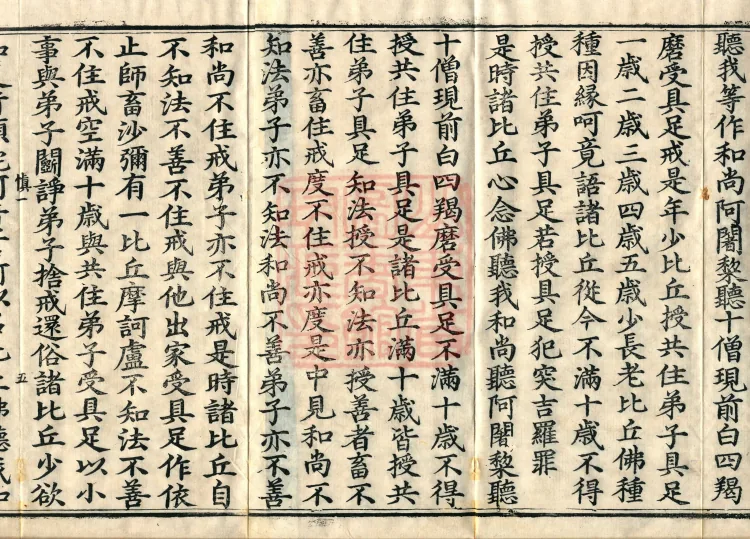 聽我等作和尚阿闍黎聽十僧現前白四羯
磨受具足戒是年少比丘授共住弟子具足
一歲二歲三歲四歲五歲少長老比丘佛種
種因緣呵竟語諸比丘從今不滿十歲不得
授共住弟子具足若授具足犯突吉羅罪
是時諸比丘心念佛聽我和尚聽阿闍黎聽
十僧現前白四羯磨受具足不滿十歲不得
授共住弟子具足是諸比丘滿十歲皆授共
住弟子具足知法授不知法亦授善者畜不
善亦畜住戒度不住戒亦度是中見和尚不
知法弟子亦不知法和尚不善弟子亦不善
和尚不住戒弟子亦不住戒是時諸比丘自
不知法不善不住戒與他出家受具足作依
止師畜沙彌有一比丘摩訶盧不知法不善
不住戒空滿十歲與共住弟子受具足以小
事與弟子鬭諍弟子捨戒還俗諸比丘少欲
慎一 五